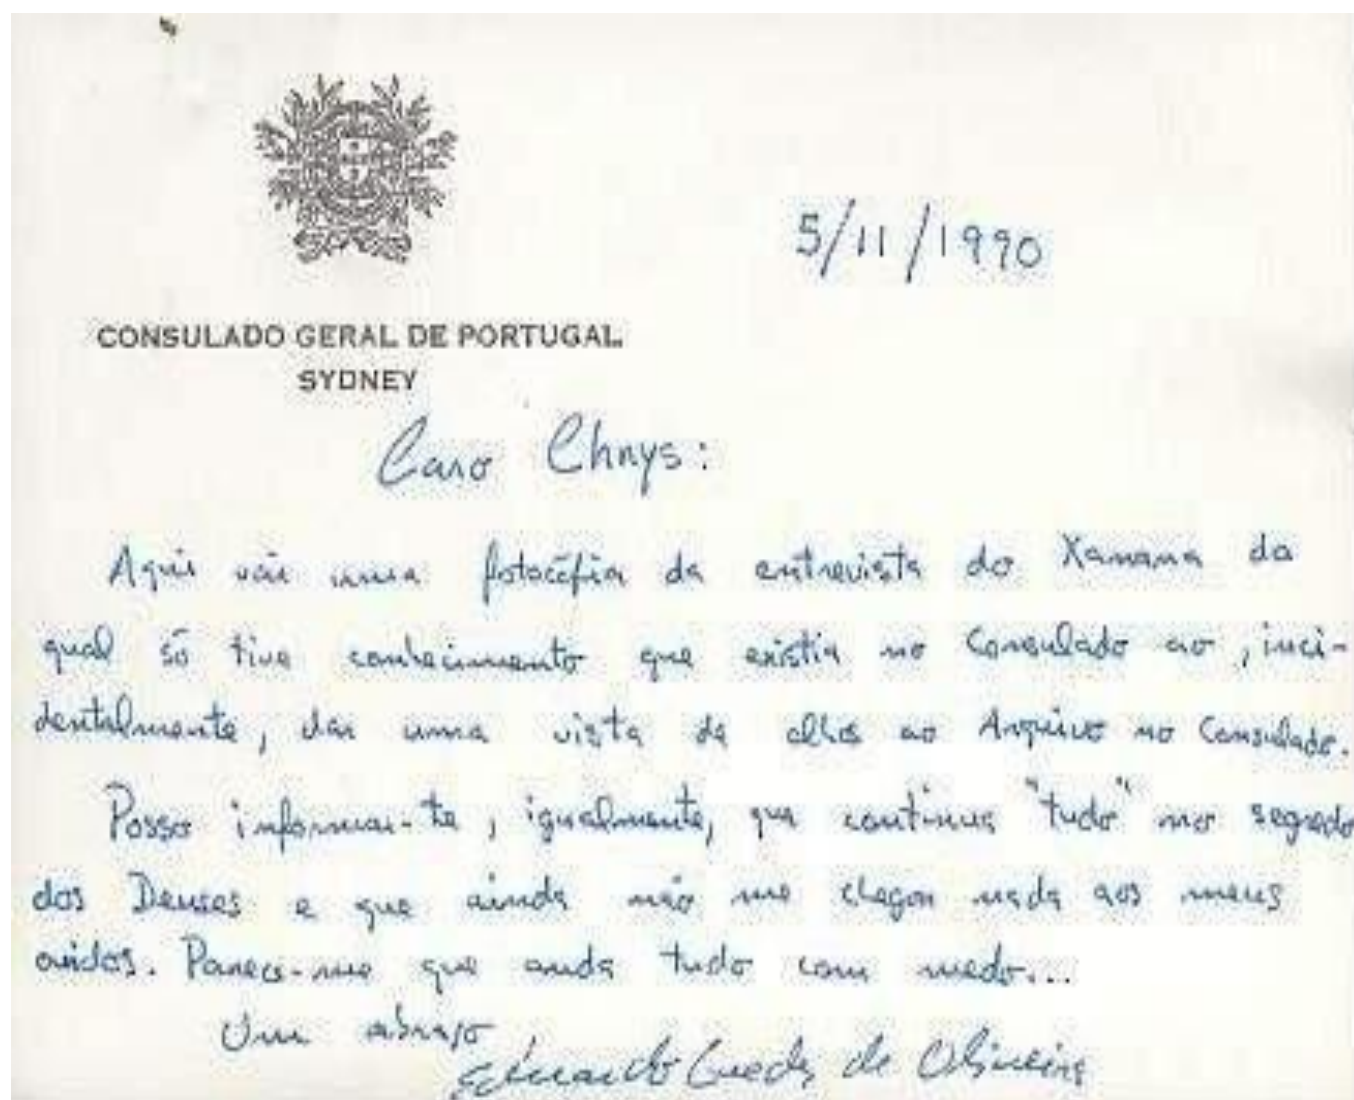 5/11/1990
CONSULADO GERAL DE PORTUGAL
SYDNEY
Caro Chrys:
Aqui vai uma fotocópia da entrevista do Xanana da
qual só tive conhecimento que existia no Consulado ao, inci-
dentalmente, dar uma vista de olhos ao Arquivo no Consulado.
Posso informar-te, igualmente, que continua "tudo" no segredo
dos Deuses e que ainda não me chegou nada aos meus
ouvidos. Parece-me que anda tudo com medo...
Um abraço,
Eduardo Guedes de Oliveira